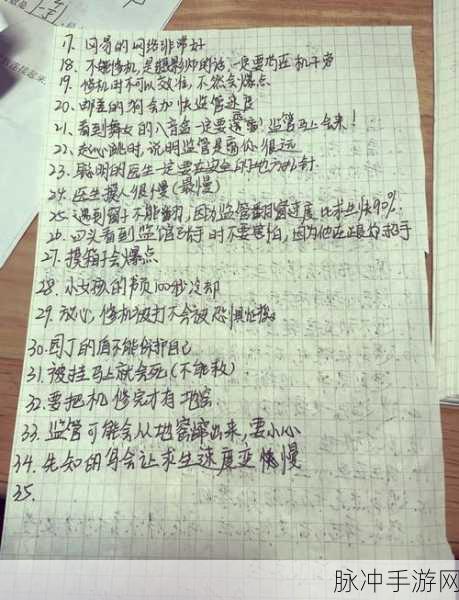 17. 网易的网络非常好
18. 不能修机,是摄影师的话一定要站在机子旁
19. 修机时不可以校准,不然会爆点
20. 邮差的狗会加快监管速度
21. 看到舞女的八音盒一定要靠近!监管马上会来!
22. 心跳时,说明监管是离你很远
23. 聪明的医生一定要在安全的地方扎针
24. 医生摸人很慢(最慢)
25. 遇到窗子不能翻,因为监管翻窗速度比求生快90%
26. 回头看到监管时不要害怕,因为他在跟你招手
27. 摸箱子会爆点
28. 小女孩的书页100秒冷却
29. 放心,修机被打不会被恐惧震慑。
30. 园丁的盾不能保护自己
31. 被挂马上就会死(不能救)
32. 要把机修完才有地窖
33. 监管可能会从地窖蹿出来,要小心
34. 先知的鸟会让求生速度变慢
35.
脉冲手游网